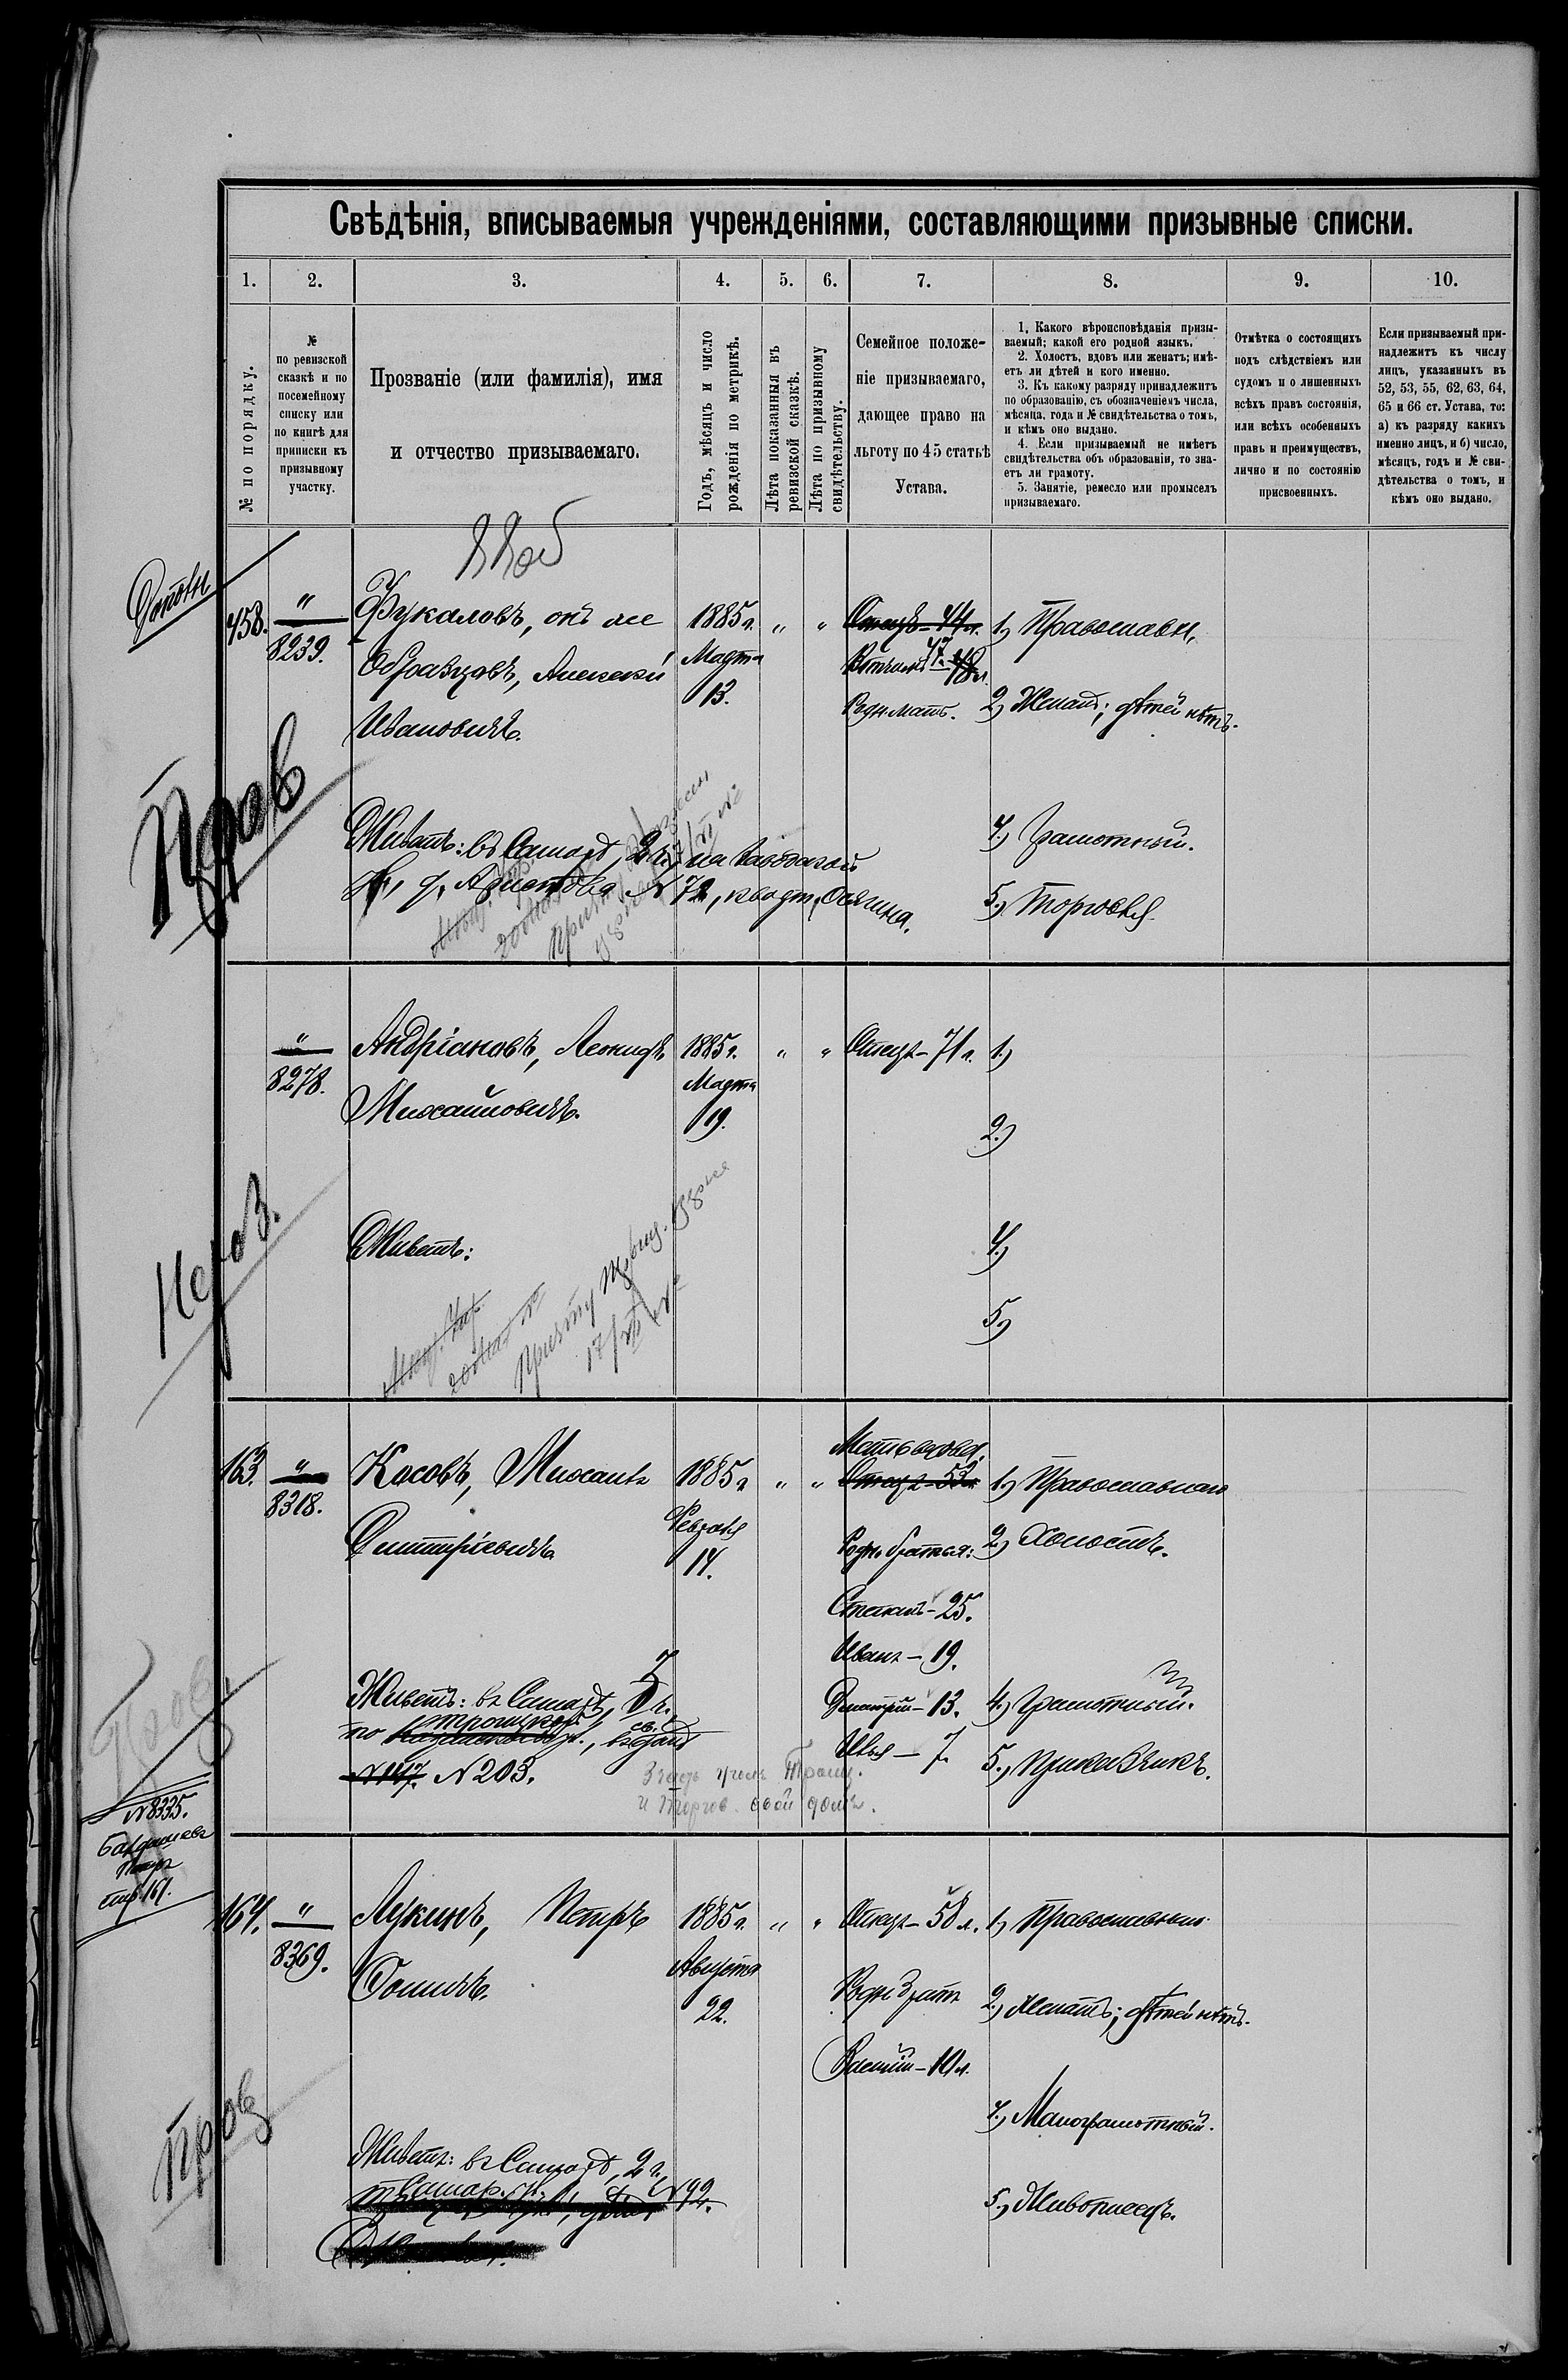 Свѣдѣнія, вписываемыя учрежденіями, составляющими призывные списки.
1. 2. 3. 4. 5. 6. 7. 8. 9. 10.
№ по порядку.
№
по ревизской
сказкѣ и по
посемейному
списку или
по книгѣ для
приписки къ
призывному
участку.
Прозваніе (или фамилія), имя
и отчество призываемаго.
Годъ, мѣсяцъ и число
рожденія по метрикѣ.
Лѣта показанныя въ
ревизской сказкѣ.
Лѣта по призывному
свидѣтельству.
Семейное положе-
ніе призываемаго,
дающее право на
льготу по 45 статьѣ
Устава.
1. Какого вѣроисповѣданія призы-
ваемый; какой его родной языкъ.
2. Холостъ, вдовъ или женатъ; имѣ-
етъ ли дѣтей и кого именно.
3. Къ какому разряду принадлежитъ
по образованію, съ обозначеніемъ числа,
мѣсяца, года и № свидѣтельства о томъ,
и кѣмъ оно выдано.
4. Если призываемый не имѣетъ
свидѣтельства объ образованіи, то зна-
етъ ли грамоту.
5. Занятіе, ремесло или промыселъ
призываемаго.
Отмѣтка о состоящихъ
подъ слѣдствіемъ или
судомъ и о лишенныхъ
всѣхъ правъ состоянія,
или всѣхъ особенныхъ
правъ и преимуществъ,
лично и по состоянію
присвоенныхъ.
Если призываемый при-
надлежитъ къ числу
лицъ, указанныхъ въ
52, 53, 55, 62, 63, 64,
65 и 66 ст. Устава, то:
а) къ разряду какихъ
именно лицъ, и б) число,
мѣсяцъ, годъ и № сви-
дѣтельства о томъ, и
кѣмъ оно выдано.
458.
"
8239.
Фукаловъ, онъ же
Образцовъ, Алексѣй
Ивановичъ.
1885 г.
Марта
13.
" "
Отецъ - 44 л.
Вотчимъ 47. 48 л.
Родн. мать.
1.) Православн.
2.) Женатъ; дѣтей нѣтъ.
4.) Грамотный.
5.) Торговля.
Прав
Живетъ: въ Самарѣ, 2 ч., на Заводской
№ 72, кварт.
"
8278.
Андріановъ, Леонидъ
Михайловичъ.
1885 г.
Марта
19.
" "
Отецъ - 71 л.
1.)
2.)
4.)
5.)
Нероз.
Живетъ:
17/VI
163.
"
8318.
Косовъ, Михаилъ
Дмитріевичъ
1885 г.
Февраля
14.
" "
Мать вдова.
Отецъ - 53 л.
Родн. братья:
Степанъ - 25.
Иванъ - 19.
Дмитрій - 13.
Илья - 7.
1.) Православнаго
2.) Холостъ.
4.) Грамотный.
5.) Приказчикъ.
Живетъ: въ Самарѣ, 5 ч.,
по Троицкой
№ 147. № 203.
Троиц.
и Торгов. свой домъ.
N 8335.
Бардашевъ
Петръ
стр. 161.
164.
"
8369.
Лукинъ, Петръ
Фомичъ.
1885 г.
Августа
22.
" "
Отецъ - 58 л.
Родн. братъ
Василій - 10 л.
1.) Православнаго
2.) Женатъ; дѣтей нѣтъ.
4.) Малограмотный.
5.) Живописецъ.
Пров
Живетъ: въ Самарѣ, 2 ч.,
Самар. ул., д. № 92.